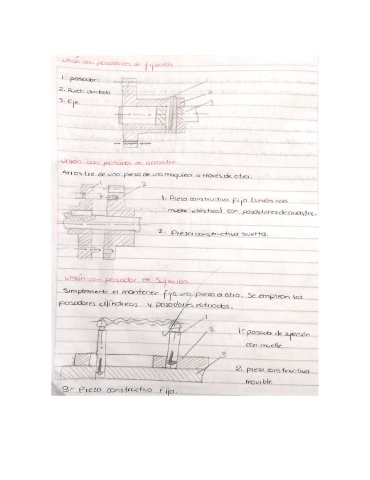 Unión con pasadores de fijación.
1. pasador
2. Rueda dentada
3. Eje.
1
2
3
Unión con pasador de arrastre
Arrastre de una pieza de una maquina a través de otra.
1
2
1. Pieza constructiva fija (unión con
muelle elástico) con pasadores de arrastre.
2. Pieza constructiva suelta.
Unión con pasador de Sujeción.
Simplemente el mantener fija una pieza a otra. Se emplean los
pasadores cilíndricos y pasadores estriados.
1
2
3
1: pasador de sujeción
con muelle.
2. pieza constructiva
movible
3- Pieza constructiva fija.